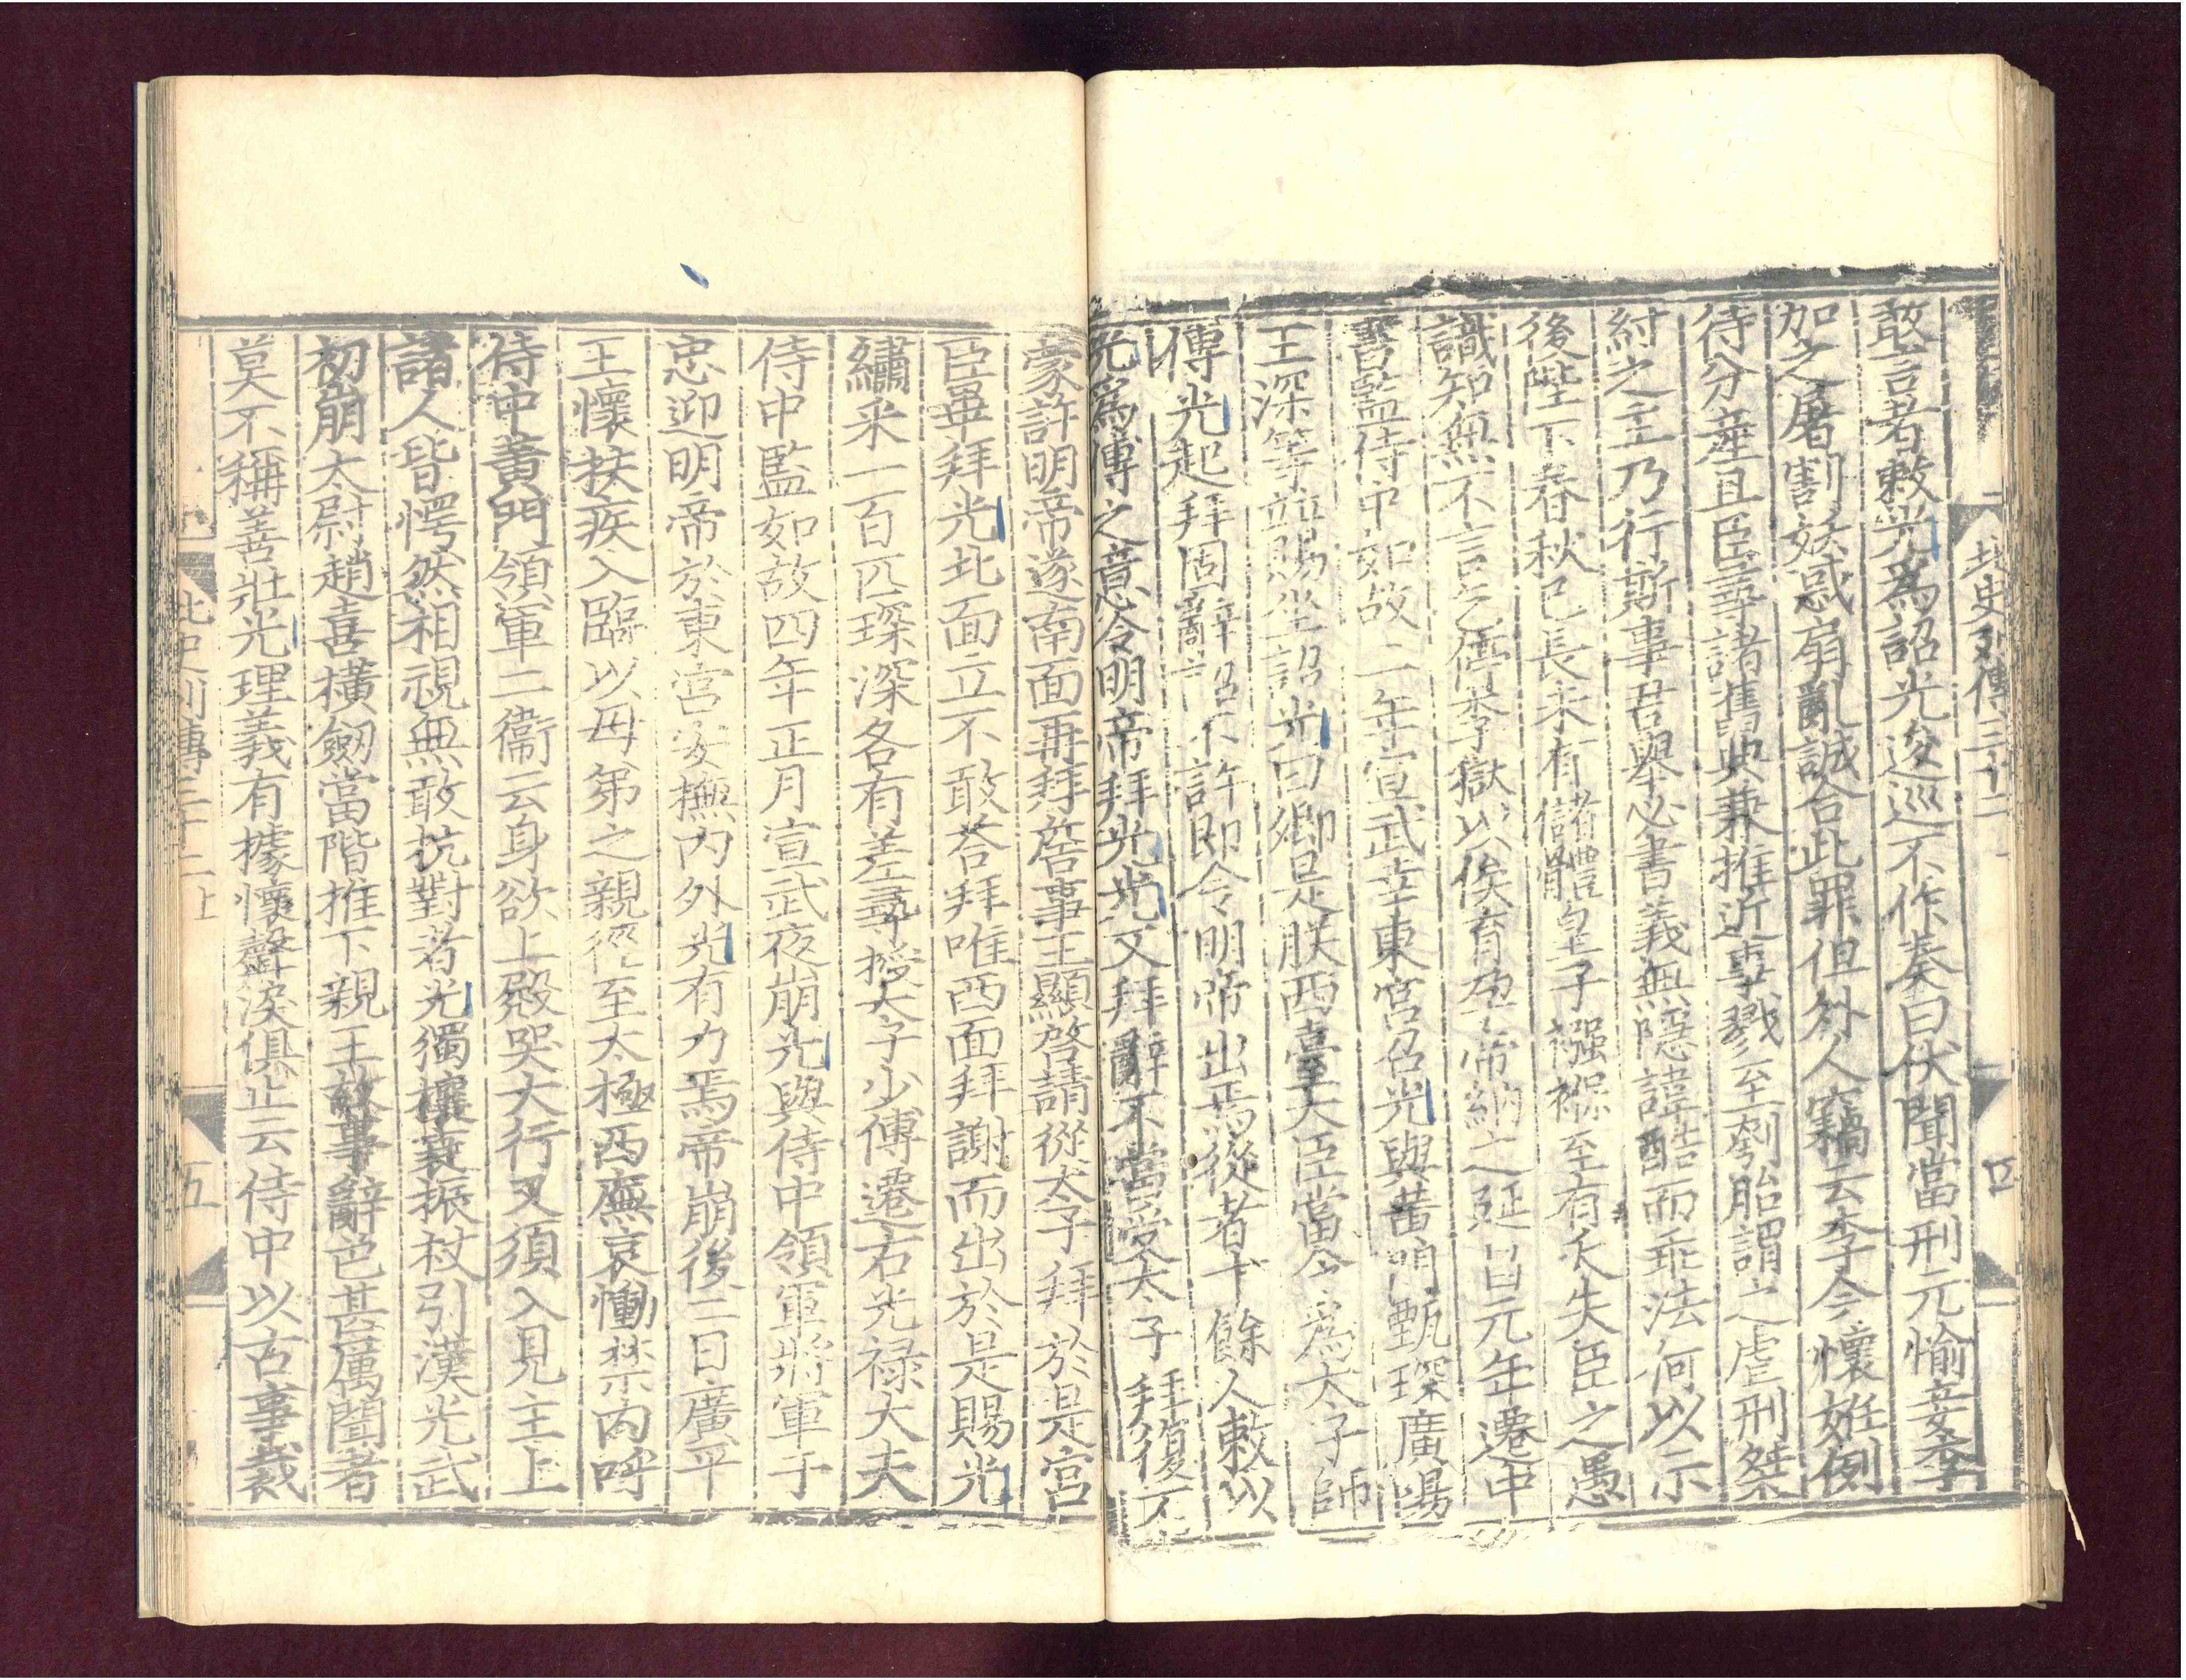 北史列傳三十二
四
敢言者敕光爲詔光逡巡不作奏曰伏聞當刑元愉妾李
加之屠割妖惑扇亂誠合此罪但外人竊云李今懷妊例
待分產且臣尋諸舊典兼推近事戮至刳胎謂之虐刑桀
紂之主乃行斯事君舉必書義無隱諱酷而乖法何以示
後陛下春秋已長未有儲體皇子襁褓至有夭失臣之愚
識知無不言乞停李獄以俟育孕帝納之延昌元年遷中
書監侍中如故二年宣武幸東宮召光與黃門甄琛廣陽
王深等竝賜坐詔光曰卿是朕西臺大臣當今爲太子師
傅光起拜固辭詔不許即令明帝出焉從者十餘人敕以
光爲傅之意令明帝拜光光又拜辭不當受太子拜復不
蒙許明帝遂南面再拜詹事王顯啓請從太子拜於是宮
臣畢拜光北面立不敢荅拜唯西面拜謝而出於是賜光
繡采一百匹琛深各有差尋授太子少傅遷右光祿大夫
侍中監如故四年正月宣武夜崩光與侍中領軍將軍于
忠迎明帝於東宮安撫內外光有力焉帝崩後二日廣平
王懷扶疾入臨以母弟之親徑至太極西廡哀慟禁內呼
侍中黃門領軍二衞云身欲上殿哭大行又須入見主上
諸人皆愕然相視無敢抗對者光獨攘衰振杖引漢光武
初崩太尉趙憙橫劒當階推下親王故事辭色甚厲聞者
莫不稱善壯光理義有據懷聲淚俱止云侍中以古事裁
北史列傳三十二上
五